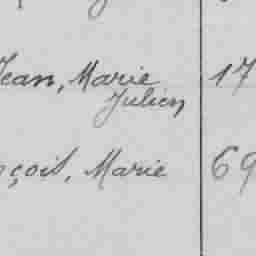 Jean, Marie 17
Julien
nçois, Marie 69